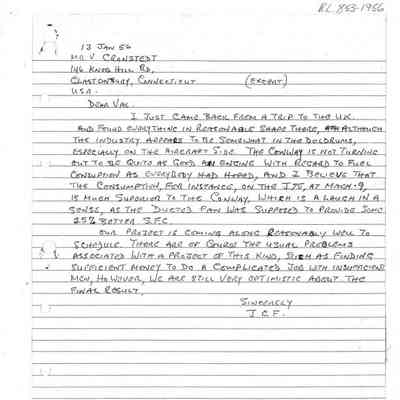 RL 853-1956
13 JAN 56
MR V. CRONSTEDT
146 KNOB HILL RD,
GLASTONBURY, CONNECTICUT (EXCERPT)
U.S.A.
DEAR VAL
I JUST CAME BACK FROM A TRIP TO THE U.K.
AND FOUND EVERYTHING IN REASONABLE SHAPE THERE, ALTHOUGH
THE INDUSTRY APPEARS TO BE SOMEWHAT IN THE DOLDRUMS,
ESPECIALLY ON THE AIRCRAFT SIDE. THE CONWAY IS NOT TURNING
OUT TO BE QUITE AS GOOD AN ENGINE WITH REGARD TO FUEL
AS EVERYBODY HAD HOPED, AND I BELIEVE THAT
THE CONSUMPTION, FOR INSTANCE, ON THE J75, AT MACH .9,
IS MUCH SUPERIOR TO THE CONWAY, WHICH IS A LAUGH IN A
SENSE, AS THE DUCTED FAN WAS SUPPOSED TO PROVIDE SOME
25% BETTER S.F.C.
OUR PROJECT IS COMING ALONG REASONABLY WELL TO
SCHEDULE. THERE ARE OF COURSE THE USUAL PROBLEMS
ASSOCIATED WITH A PROJECT OF THIS KIND, SUCH AS FINDING
SUFFICIENT MONEY TO DO A COMPLICATED JOB WITH INSUFFICIENT
MEN, HOWEVER, WE ARE STILL VERY OPTIMISTIC ABOUT THE
FINAL RESULT.
SINCERELY
J.C.F.